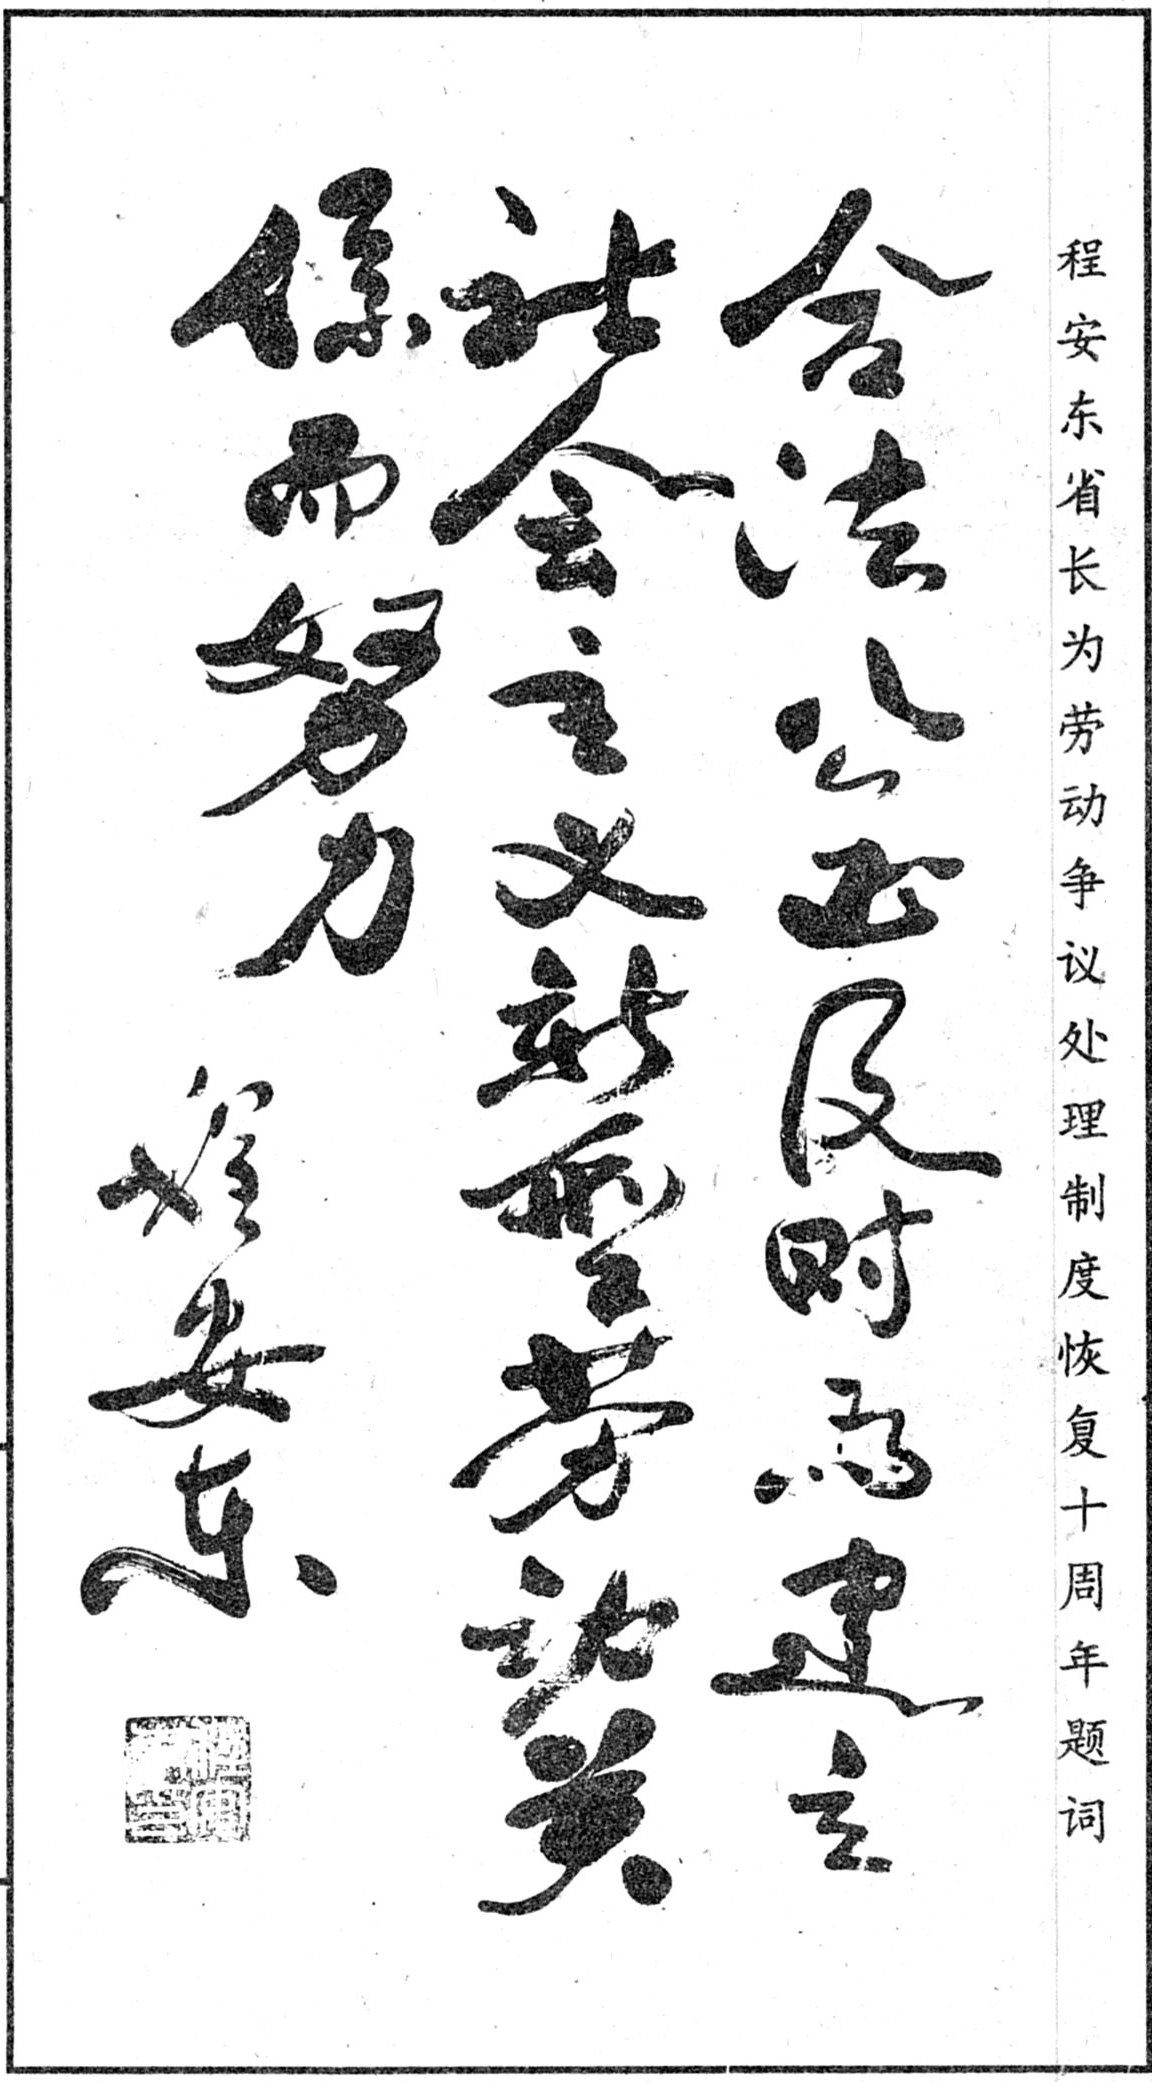 程安东省长为劳动争议处理制度恢复十周年题词
合法公正及时为建立
社会主义新型劳动关
係而努力
程安东